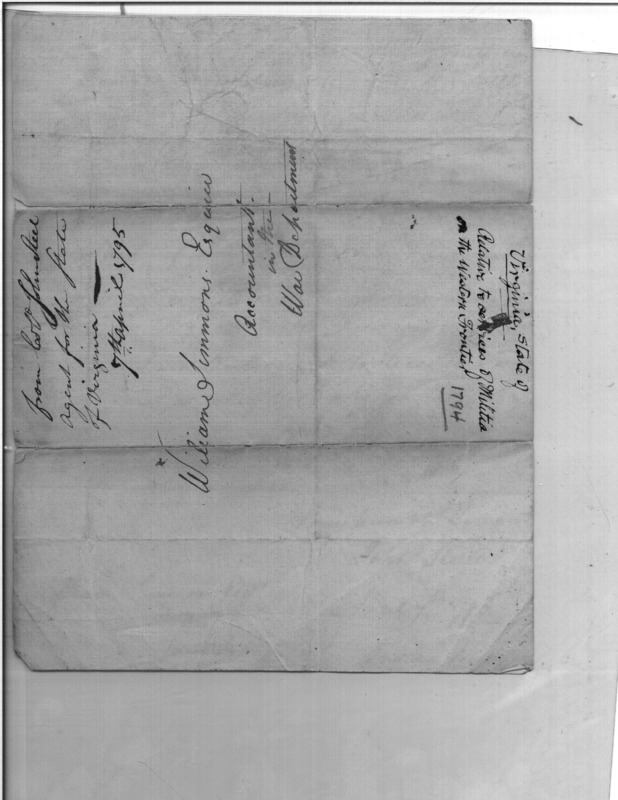 from Col John Steele
agent for the State
of Virginia
7th april 1795
William Simmons. Esquire
Accountant.
in the
War Department
Virginia, State of
Relative to services of Militia
on the Western Frontier,
1794